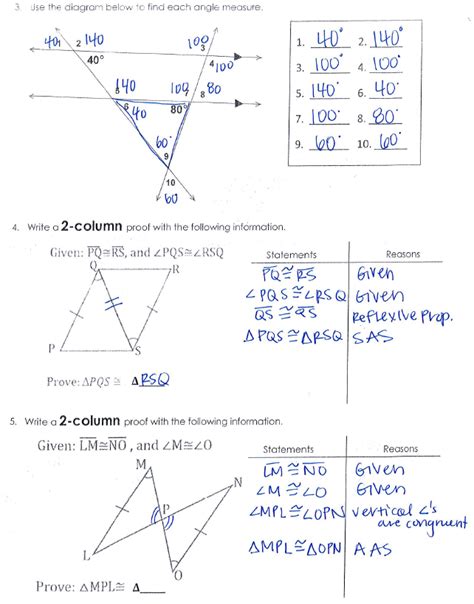 3. Use the diagram below to find each angle measure.
40 1 2 140
40°
100 3
4 100
140
5
6 40
100 7
8 80
80°
60°
9
10
60
1. 40° 2. 140°
3. 100° 4. 100°
5. 140° 6. 40°
7. 100° 8. 80°
9. 60° 10. 60°
4. Write a 2-column proof with the following information.
Given: PQ≅RS, and ∠PQS≅∠RSQ
Q R
P S
Prove: ΔPQS ≅ Δ RSQ
Statements Reasons
PQ ≅ RS Given
∠PQS ≅ ∠RSQ Given
QS ≅ QS Reflexive Prop.
ΔPQS ≅ ΔRSQ SAS
5. Write a 2-column proof with the following information.
Given: LM≅NO, and ∠M≅∠O
M
N
P
L
O
Prove: ΔMPL≅ Δ____
Statements Reasons
LM ≅ NO Given
∠M ≅ ∠O Given
∠MPL ≅ ∠OPN vertical ∠'s
are congruent
ΔMPL ≅ ΔOPN AAS